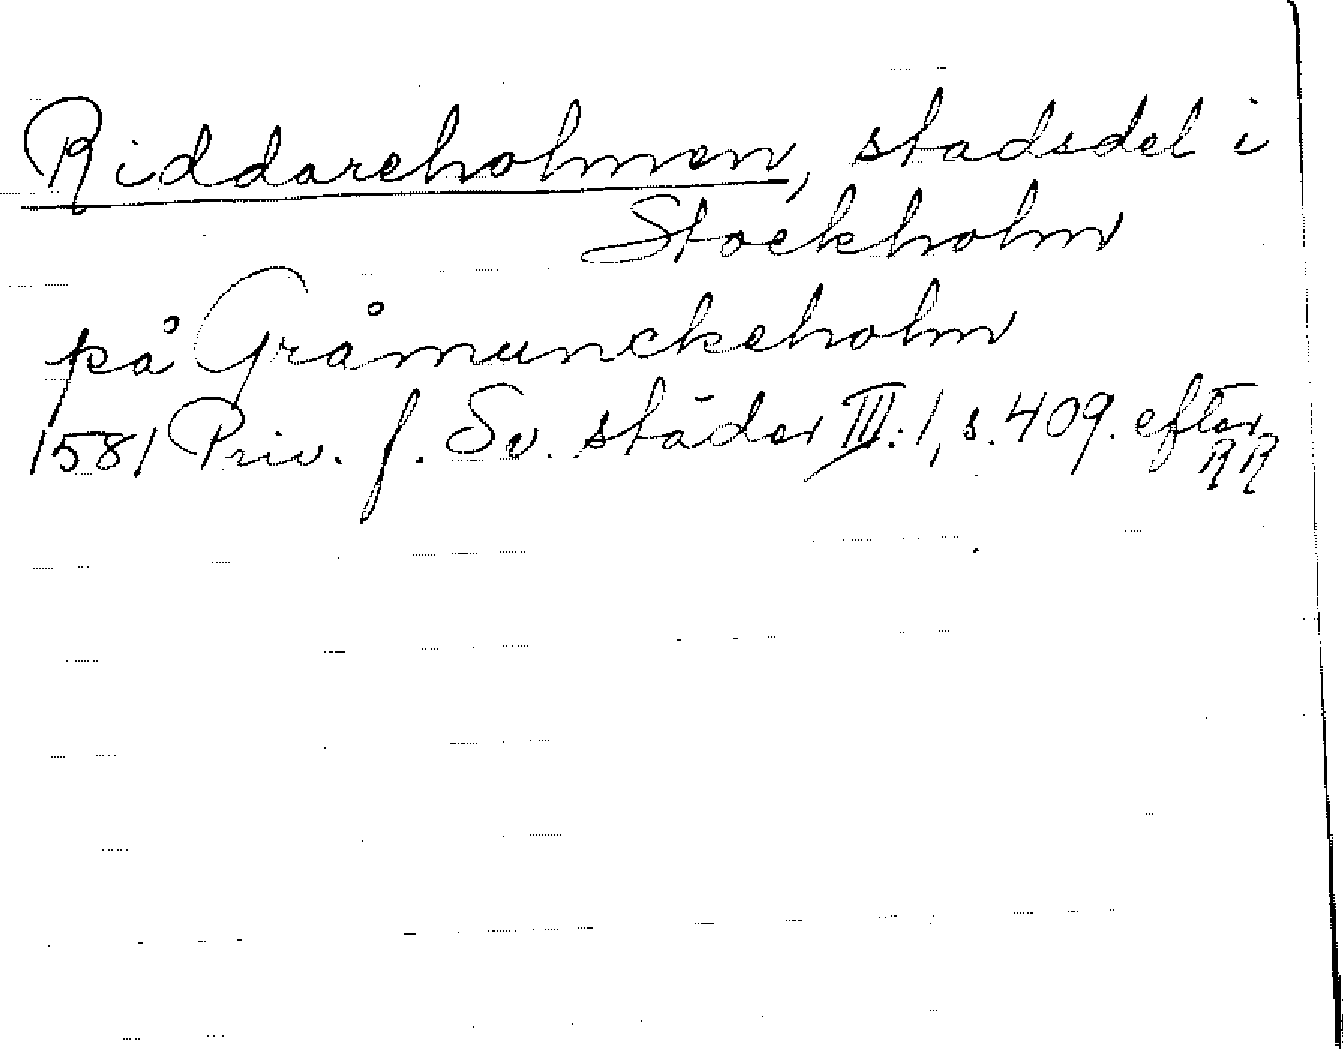 Riddareholmen, stadsdel i
Stockholm
på Gråmunckeholm
1581 Priv. f. Sv. städer III:1, s. 409. efter
RR